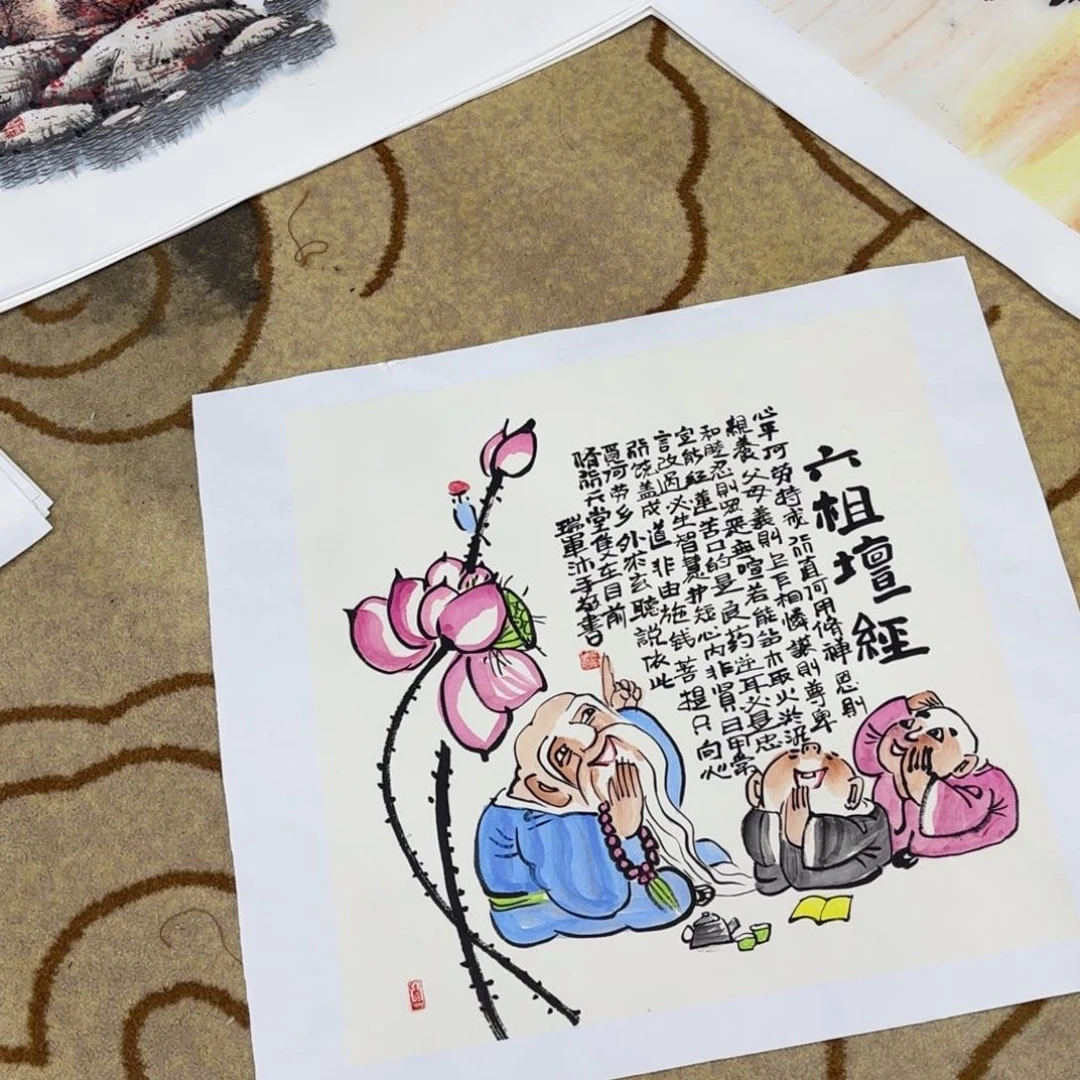 六祖壇經
心平何劳持戒行直何用脩禅恩則
親養父母義則上下相憐讓則尊卑
和睦忍則眾惡無喧若能鉆木取火淤泥
定能红蓮苦口的是良药逆耳必是忠
言改過必生智慧护短心内非賢日用常
行饶益成道非由施钱菩提只向心
覓何劳乡外求玄聽説依此
脩行天堂隻在目前
瑞軍沐手敬書